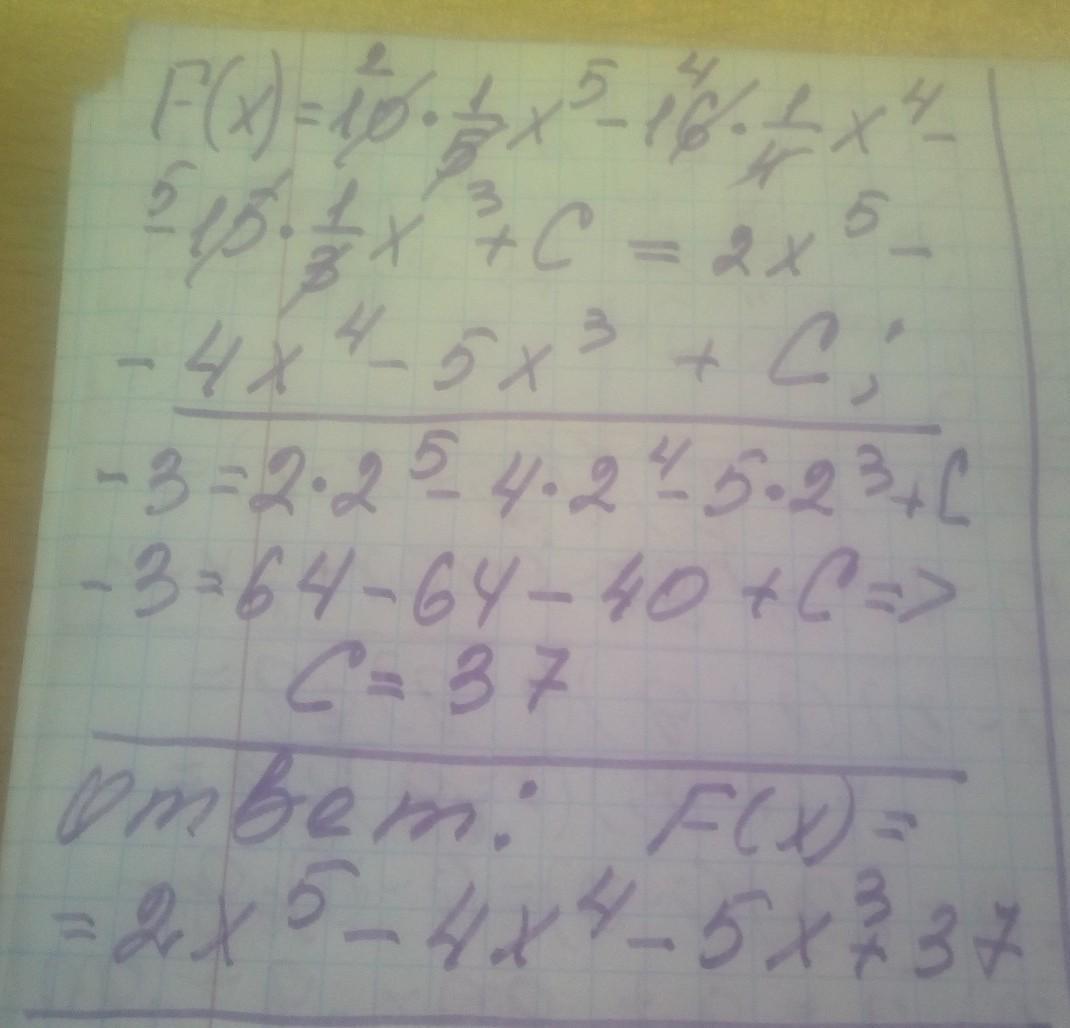 F(x)=10·1/5x⁵-16·1/4x⁴-
2 4
-15·1/3x³+C=2x⁵-
5
-4x⁴-5x³+C;
-3=2·2⁵-4·2⁴-5·2³+C
-3=64-64-40+C=>
C=37
Ответ: F(x)=
=2x⁵-4x⁴-5x³+37